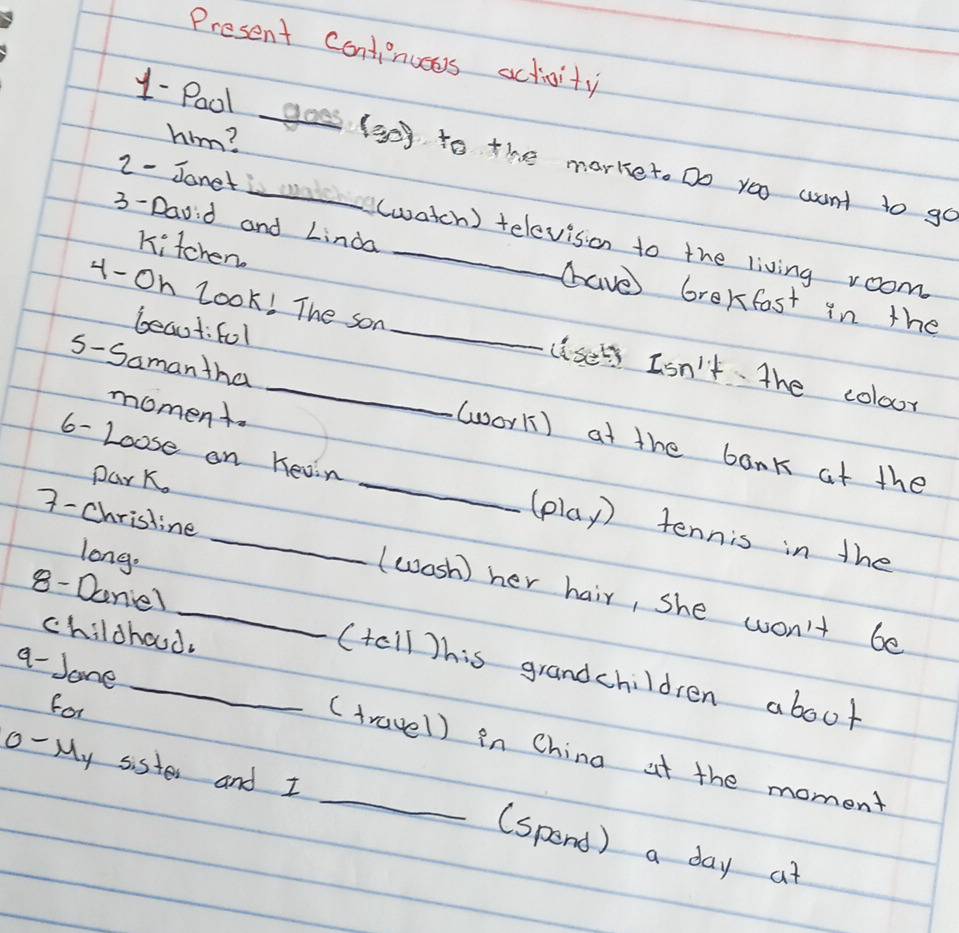 Present Continuous activity
1- Paol goes (go) to the market. Do you want to go
hm?
2- Janet is watching (watch) television to the living room.
3- David and Linda ______ (have) brekfast in the
Kitchen.
4- Oh Look! The son ______ (set) Isn't the colour
beautiful
5- Samantha ______ (work) at the bank at the
moment.
6- Loose an Kevin ______ (play) tennis in the
park.
7- Christine ______ (wash) her hair, she won't be
long.
8- Daniel ______ (tell) his grandchildren about
childhoud.
9- Jane ______ (travel) in China at the moment
for
0- My sister and I ______ (spend) a day at